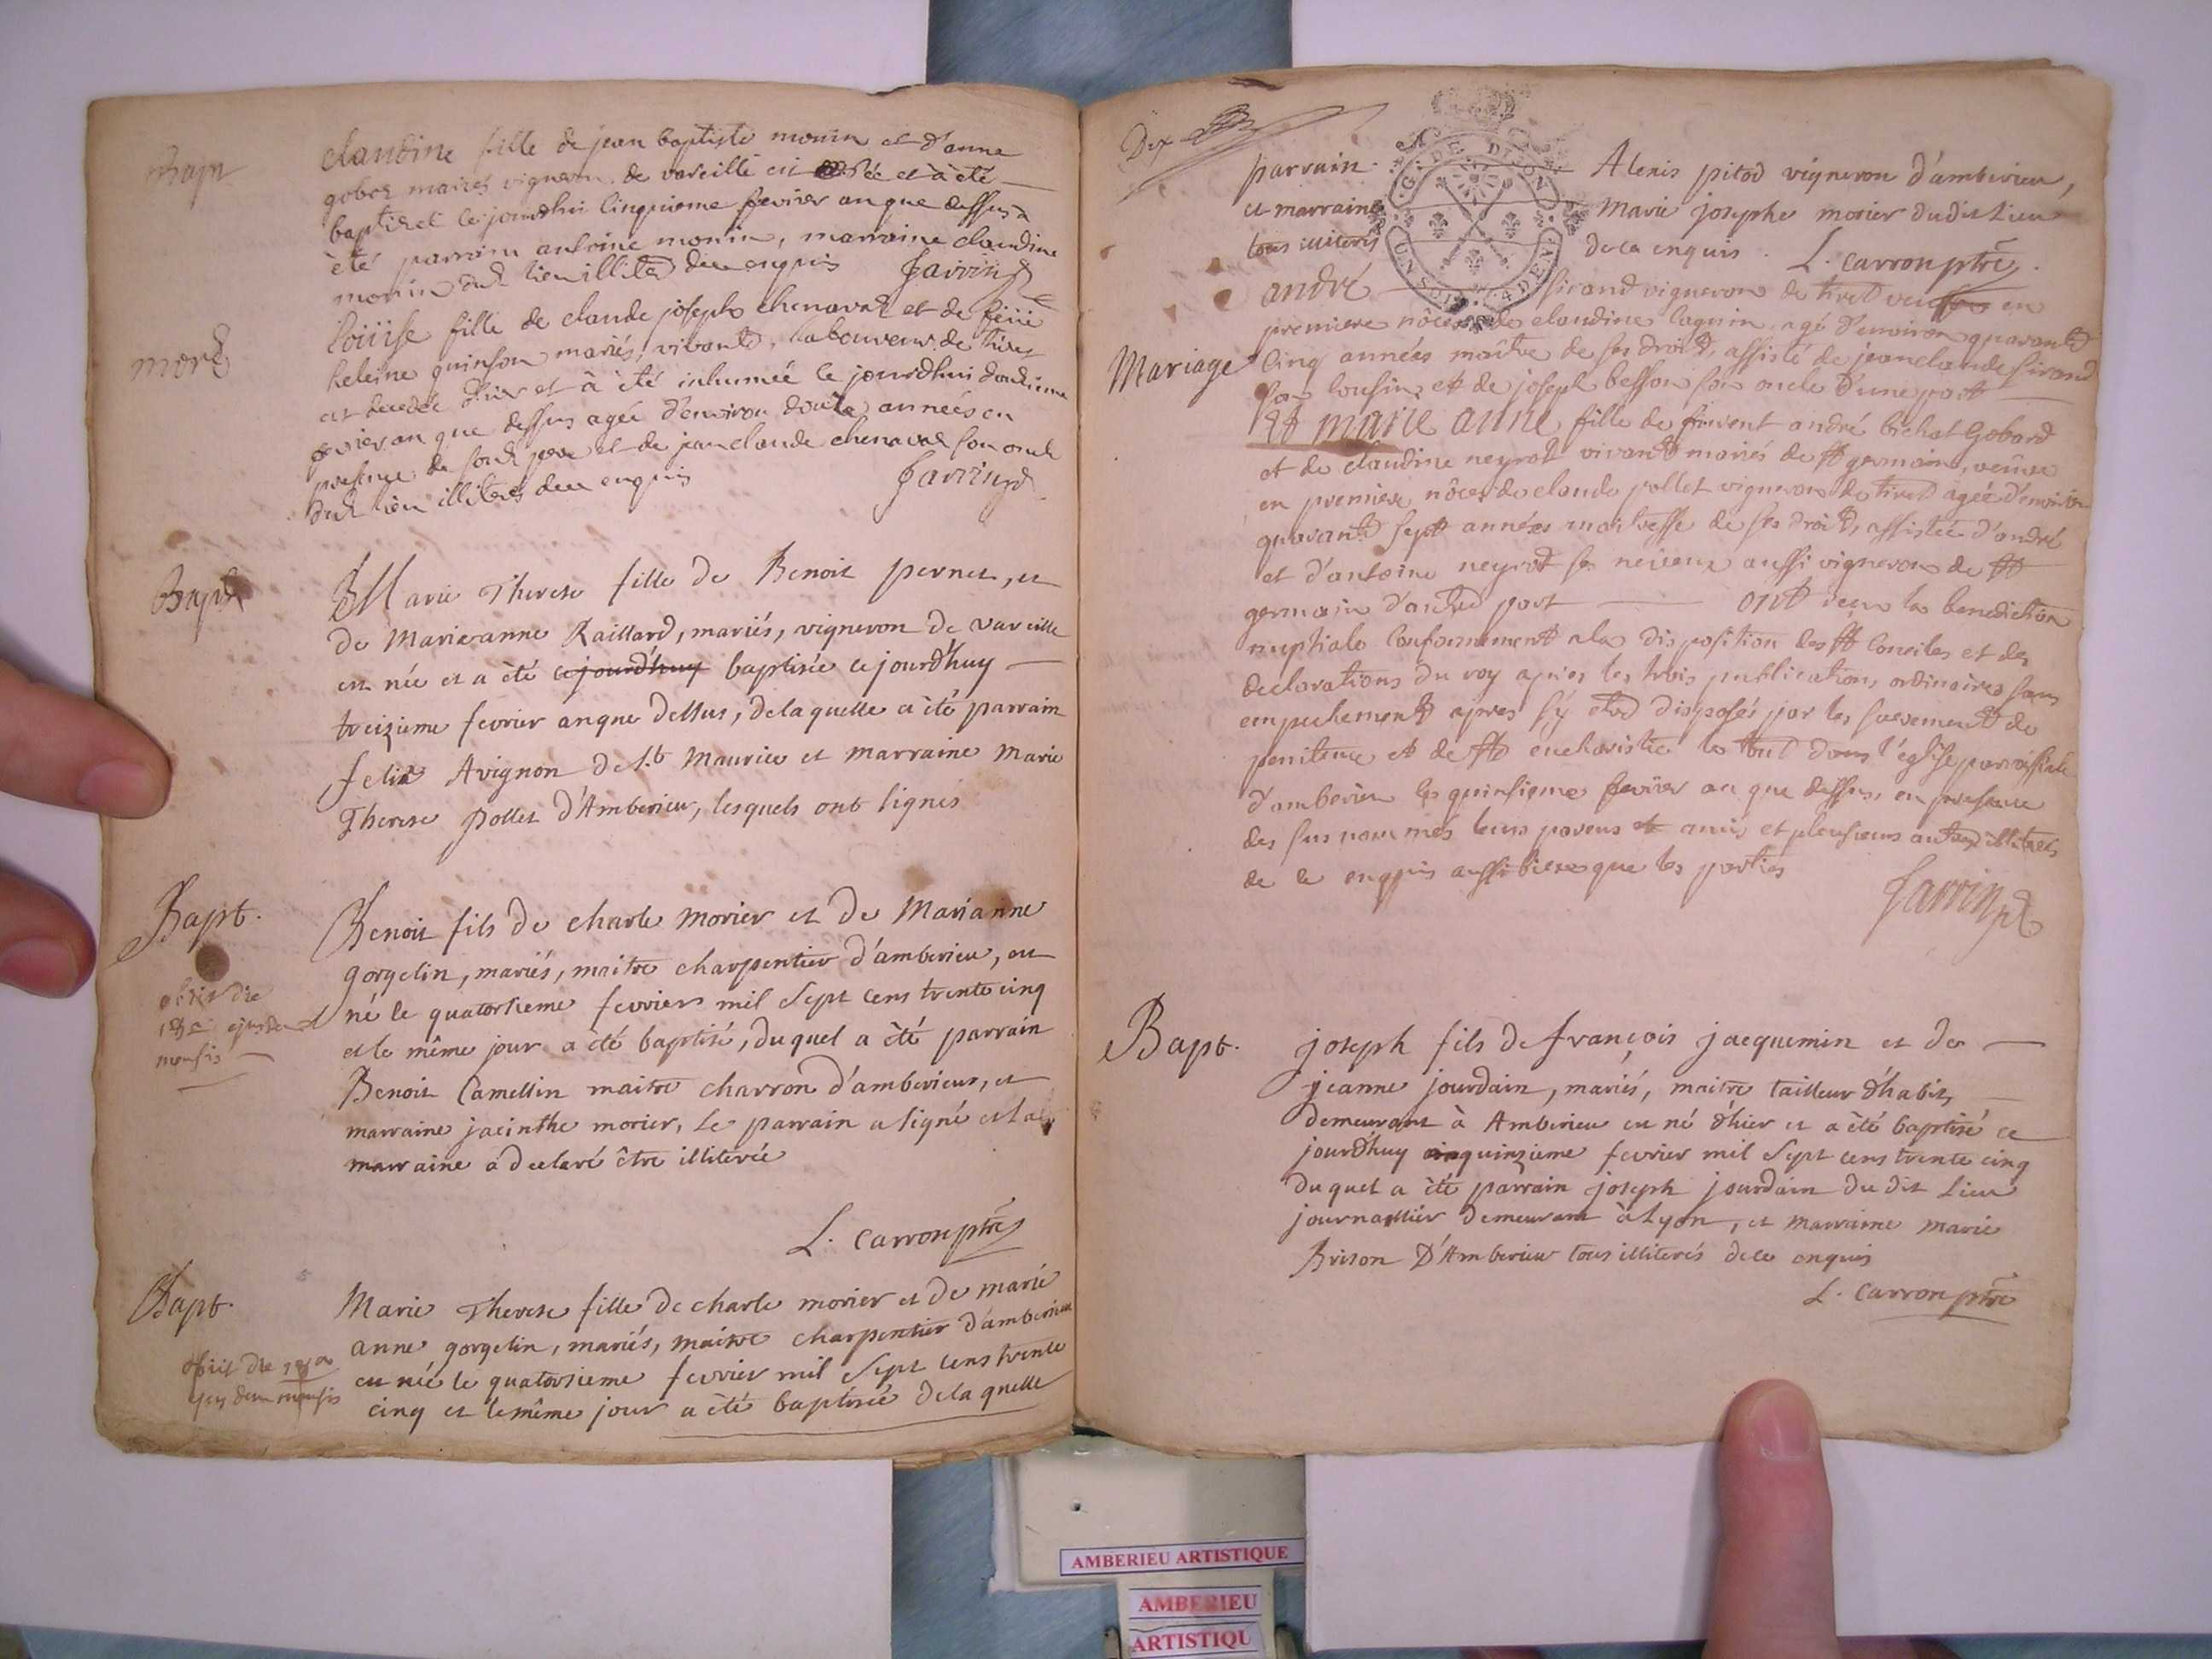 Bapt
claudine fille de jean baptiste monin et d'anne
gobet mariés vigneron de vareille est née et à été
baptisée ce jourdhui cinquieme fevrier an que dessus à
été parrain antoine monin, marraine claudine
monin dud lieu illité de ce enquis
Jarrin p
mort
loüise fille de claude joseph chenaval et de feüe
heleine quinson mariés, vivants, laboureur de tiret
est decedée d'hier et à été inhumée ce jourdhui douzieme
fevrier an que dessus agée d'environ douze années en
presence de sond pere et de jean claude chenaval son oncle
dud lieu illiterés de ce enquis
Jarrin p
Bapt
Marie Therese fille de Benoit pernet, et
de Marieanne Raillard, mariés, vigneron de vareille
est née et a èté ce jourd'huy baptisée ce jourd'huy
treizieme fevrier an que dessus, de laquelle a èté parrain
felix Avignon de St Maurice et marraine Marie
Therese pollet d'Amberieu, lesquels ont signés
Bapt.
obiit die
18a ejusdem
mensis
Benoit fils de charle morier et de Marianne
gorgelin, mariés, maitre charpentier d'amberieu, est
né le quatorsieme fevrier mil sept cens trente cinq
et le même jour a èté baptisé, duquel a èté parrain
Benoit Camellin maitre charron d'amberieu, et
marraine jacinthe morier, le parrain a signé et la
marraine a declaré être illiterée
L. carron ptre
Bapt.
obiit die 18a
ejusdem mensis
Marie Therese fille de charle morier et de marie
anne gorgelin, mariés, maitre charpentier d'amberieu
est née le quatorsieme fevrier mil sept cens trente
cinq et le même jour a èté baptisée de laquelle
Dix
G. DE DIJON
UN SOL 4 DEN
parrain Alexis pitod vigneron d'amberieu,
et marraine Marie josephe morier dudit lieu
tous illiterés de ce enquis. L. carron ptre.
Mariage
andré sirand vigneron de tiret veuf en
premiere nôces de claudine laguin, agé d'environ quarante
cinq années maître de ses droits, assisté de jean claude sirand
son cousin, et de joseph besson son oncle d'une part
Et marie anne fille de andré bichat Gobard
et de claudine neyrot vivants mariés de st germain, veuve
en premiere nôces de claude pollet vigneron de tiret agée d'environ
quarante sept années maitresse de ses droits, assistée d'andré
et d'antoine neyrot ses neveux aussi vignerons de st
germain d'autre part ont reçu la benediction
nuptiale conformement a la disposition des sts conciles et des
declarations du roy apres les trois publications ordinaires sans
empechement apres s'y etre disposés par les sacrements de
penitence et de ste eucharistie le tout dans l'église paroissiale
d'amberieu le quinsieme fevrier an que dessus, en presence
des sus nommés leurs parens et amis et plusieurs autres illiterés
de ce enquis aussi bien que les parties
Jarrin p
Bapt.
joseph fils de françois jacquemin et de
jeanne jourdain, mariés, maitre tailleur d'habits,
demeurant à Amberieu est né d'hier et a èté baptisé ce
jourd'huy quinzieme fevrier mil sept cens trente cinq
duquel a èté parrain joseph jourdain du dit lieu
journallier demeurant à Lyon, et marraine marie
Brison d'Amberieu tous illiterés de ce enquis
L. carron ptre
AMBERIEU ARTISTIQUE
AMBERIEU
ARTISTIQU